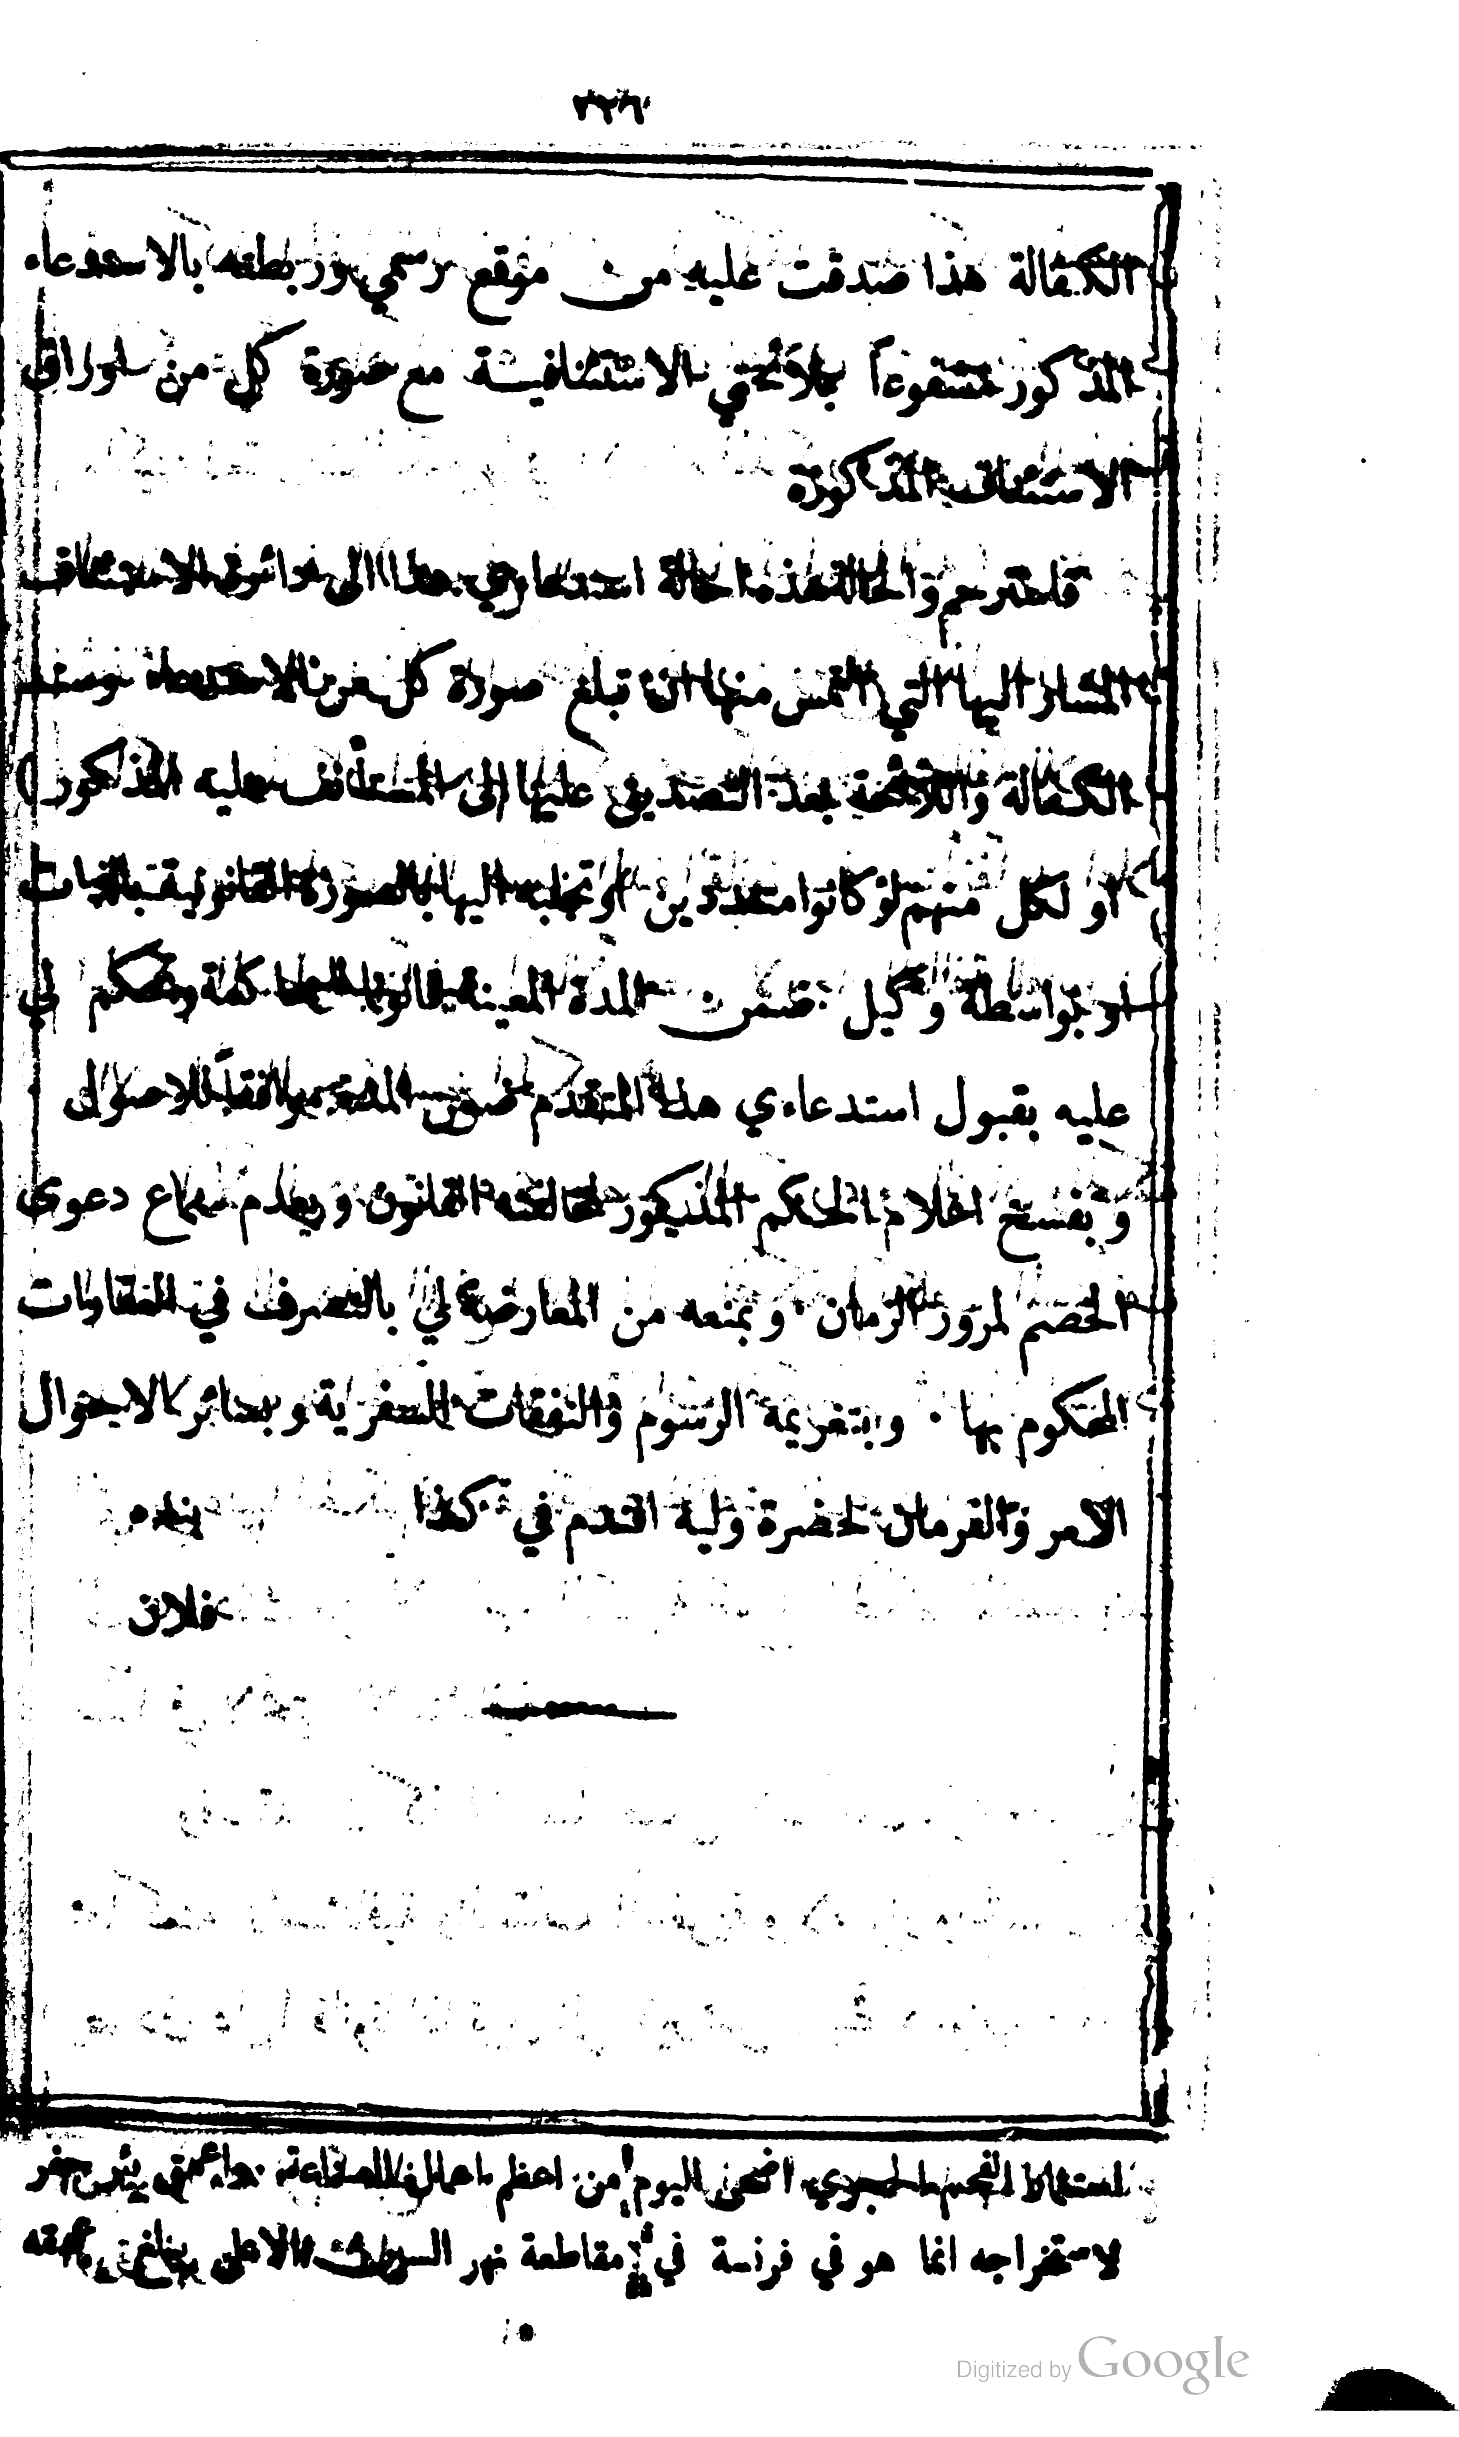 الكفالة هذا صدقت عليه من موقع رسمي وربطته بالاستدعاء
المذكور مشفوعاً بلائحتي الاستئنافية مع صورة كل من اوراق
الاستئناف المذكورة
فاسترحم والحالة هذه احالة استدعاءي هذا الى دائرة الاستئناف
المشار اليها التي التمس منها ان تبلغ صورة كل من الاستدعاء وسند
الكفالة واللائحة بعد التصديق عليها الى المستأنف عليه المذكور (
او لكل منهم لو كانوا متعددين) وتجلبه اليها بالصورة القانونية بالذات
او بواسطة وكيل ضمن المدة المعينة قانونا للمحاكمة وتحكم لي
عليه بقبول استدعاءي هذا المتقدم ضمن المدة موافقاً للاصول
وبفسخ اعلام الحكم المذكور لمخالفته القانون وبعدم سماع دعوى
الخصم لمرور الزمان وبمنعه من المعارضة لي بالتصرف في العقارات
المحكوم بها · وبتغريمه الرسوم والنفقات السفرية وبسائر الاحوال
الامر والفرمان لحضرة وليه افندم في كذا بنده
فلان
استخراج الفحم الحجري اضحى اليوم من اعظم اعمال الصناعة واعمق بئر حفر
لاستخراجه انما هو في فرنسة في مقاطعة نهر السوان الاعلى يبلغ عمقه
Digitized by Google